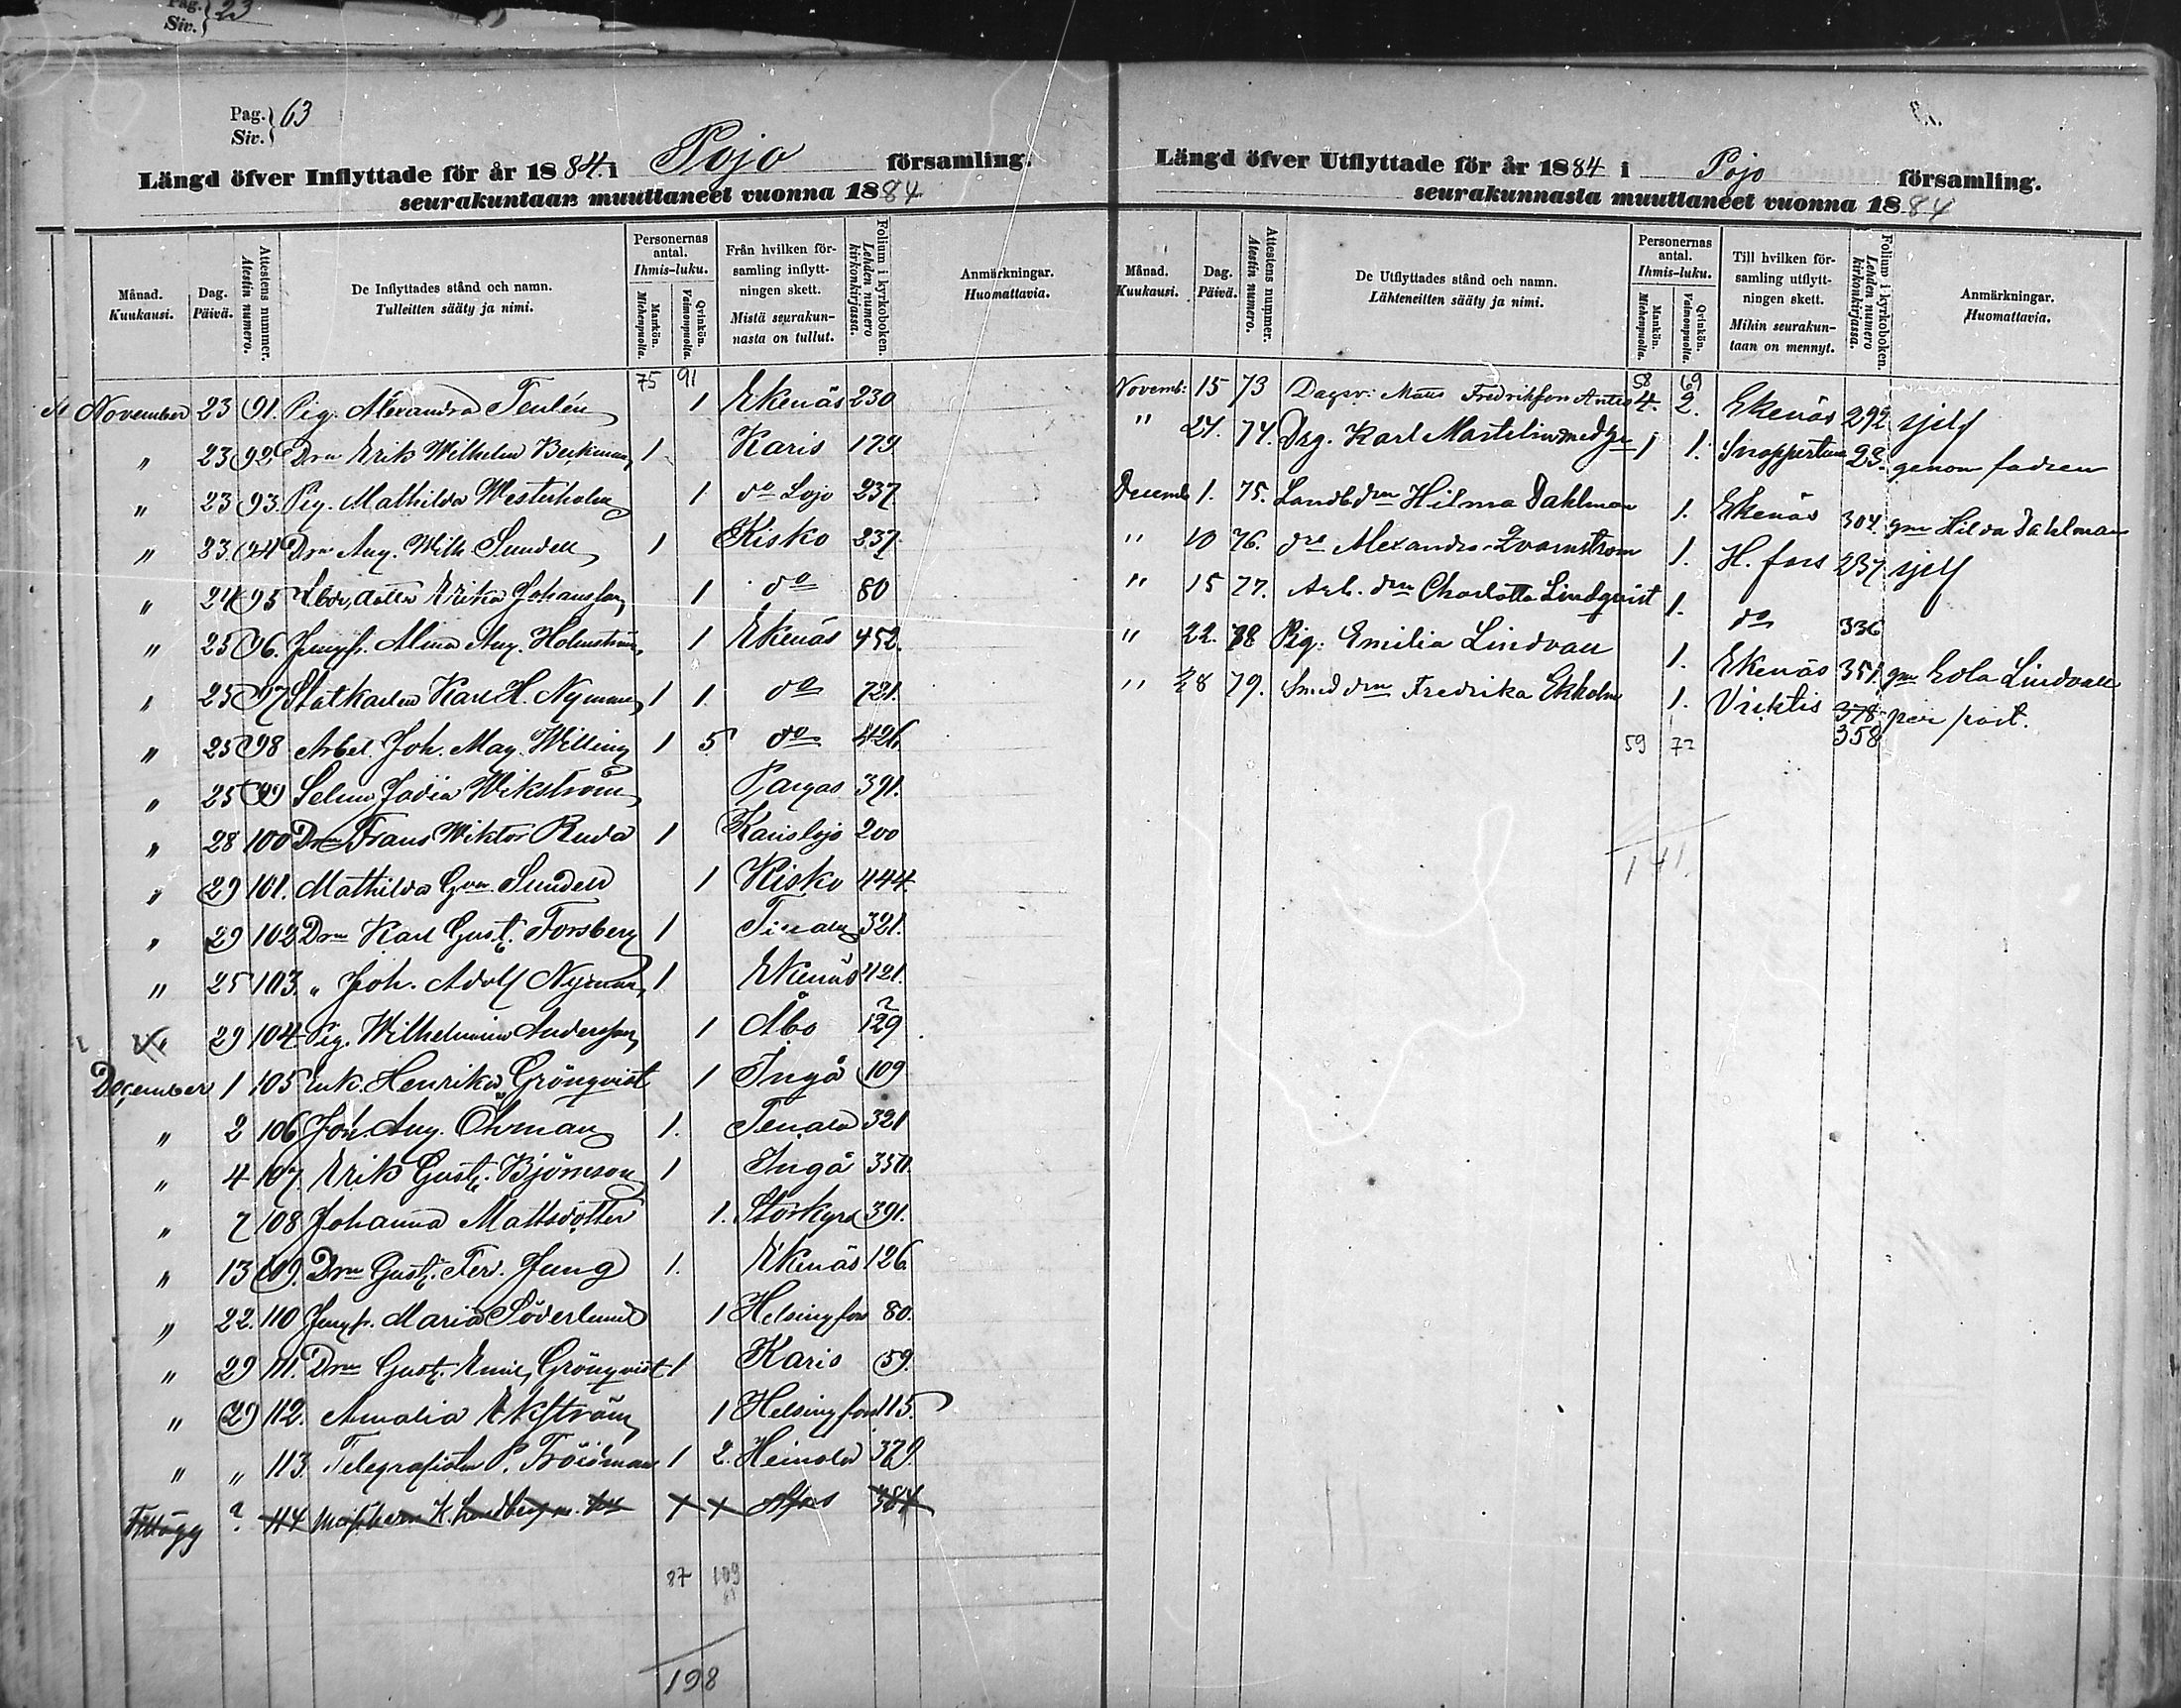 Pag. 23
Siv.
Pag. 63
Siv.
Längd öfver Inflyttade för år 1884 i Pojo församling.
seurakuntaan muuttaneet vuonna 1884
Månad. Kuukausi.
Dag. Päivä.
Attestens nummer. Atestin numero.
De Inflyttades stånd och namn. Tulleitten sääty ja nimi.
Personernas antal. Ihmis-luku.
Mankön. Miehenpuolia.
Qvinkön. Vaimonpuolia.
Från hvilken församling inflyttningen skett. Mistä seurakunnasta on tullut.
Folium i kyrkoboken. Lehden numero kirkonkirjassa.
Anmärkningar. Huomattavia.
75 91
November 23 91. Pig. Alexandra Tenlén 1 Ekenäs 230
" 23 92 Drn Erik Wilhelm Beckman 1 Karis 179
" 23 93. Pig. Mathilda Westerholm 1 do Lojo 237
" 23. 94 Drn Aug. Wilh. Sundell 1 Kisko 237.
" 24 95 dotter Erika Johansson 1 do 80
" 25 96. Jungfr. Alma Aug. Holmström 1 Ekenäs 452.
" 25 97 Statkarlen Karl H. Nyman 1 1 do 721.
" 25 98 Arbet. Joh. Mag. Willing 1 5 do 426.
" 25 99 Selma Wikström Pargas 391.
" 28 100 Drn Frans Wiktor Ruda 1 Karislojo 200
" 29 101. Mathilda Sundell 1 Kisko 444.
" 29 102 Drn Karl Gust. Forsberg 1 Tenala 321.
" 25 103. " Joh. Adolf Nyman 1 Ekenäs 421.
" 29 104 Pig. Wilhelmina Andersson 1 Åbo 129
December 1 105 Enk. Henrika Grönqvist 1 Ingå 109
" 2 106 Joh. Aug. Öhman 1. Tenala 321
" 4 107. Erik Gust. Björnson 1 Ingå 350.
" 7 108 Johanna Mattsdotter 1. Storkyro 391.
" 13 109. Drn Gust. Fer. Jung 1. Ekenäs 126.
" 22. 110 Jungfr. Maria Söderlund 1 Helsingfors 80.
" 29 111. Drn Gust. Emil Grönqvist 1 Karis 59.
" 29 112. Amalia Ekström 1 Helsingfors 115.
" " 113. Telegrafisten P. Fröidman 1 2. Heinola 379.
Tillägg ? 114 K. Lindberg 384
87 109
198
Längd öfver Utflyttade för år 1884 i Pojo församling.
seurakunnasta muuttaneet vuonna 1884
Månad. Kuukausi.
Dag. Päivä.
Attestens nummer. Atestin numero.
De Utflyttades stånd och namn. Lähteneitten sääty ja nimi.
Personernas antal. Ihmis-luku.
Mankön. Miehenpuolia.
Qvinkön. Vaimonpuolia.
Till hvilken församling utflyttningen skett. Mihin seurakuntaan on mennyt.
Folium i kyrkoboken. Lehden numero kirkonkirjassa.
Anmärkningar. Huomattavia.
58 69
Novemb: 15 73 Dagsv: Matts Fredriksson 4. 2. Ekenäs 292 sjelf
" 24. 74. Drg. Karl Martelin med 1 1. Snappertuna 23. genom fadren
Decemb 1. 75. Landb.drn Hilma Dahlman 1. Ekenäs 304. gm Hilda Dahlman
" 10 76. dro Alexandra Qvarnström 1. H.fors 237 sjelf
" 15 77. Arb. drn Charlotta Lindqvist 1. do 336
" 22. 78 Pig: Emilia Lindvall 1. Ekenäs 351. gm Lindvall
" 28 79. Smed drn Fredrika Ekholm 1. Vichtis 378 per post.
358
59 72
141.